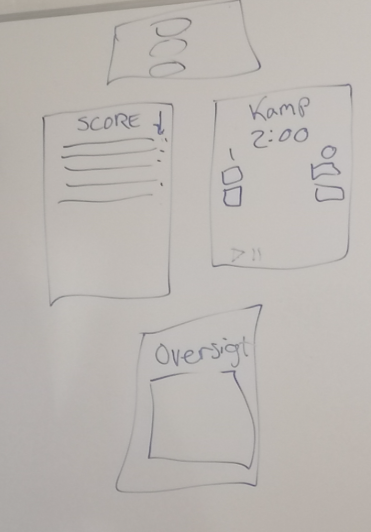 SCORE
Kamp
2:00
1 0
Oversigt